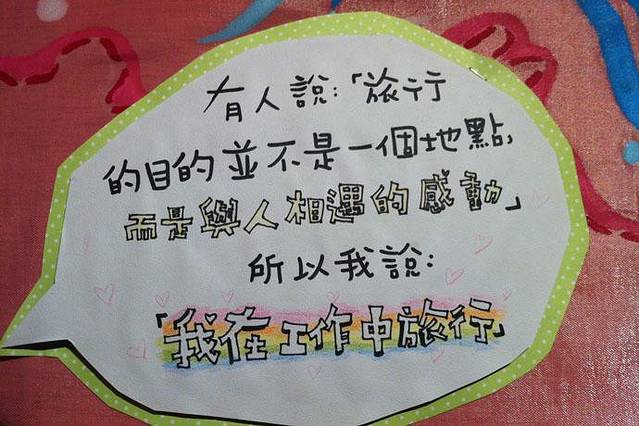 有人說:「旅行
的目的並不是一個地點,
而是與人相遇的感動」
所以我說:
「我在工作中旅行」